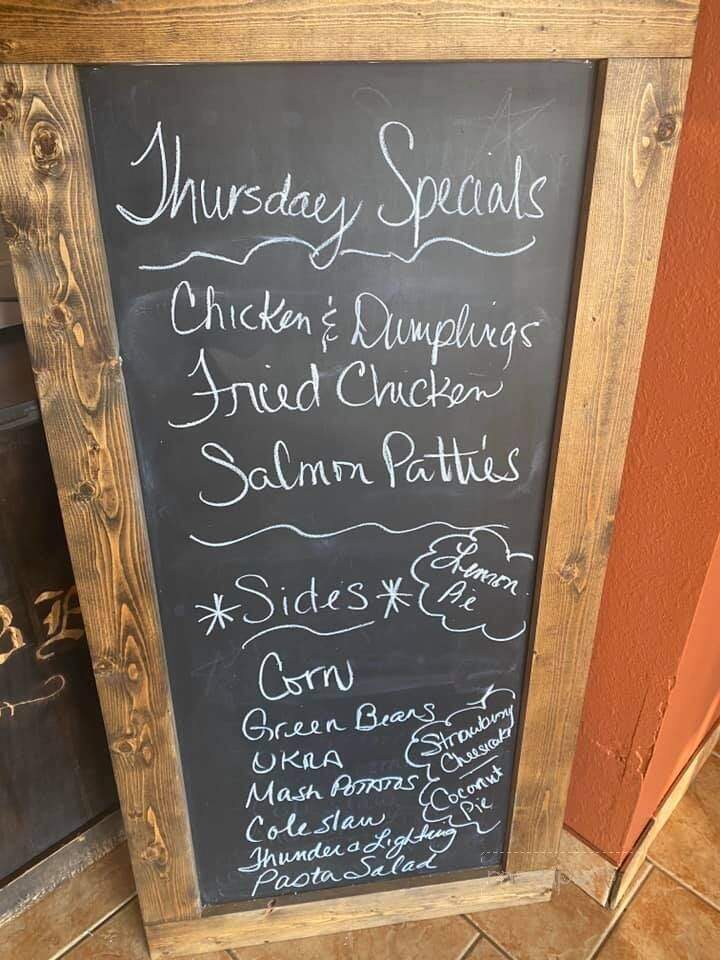 Thursday Specials
Chicken & Dumplings
Fried Chicken
Salmon Patties
*Sides*
Lemon
Pie
Corn
Green Beans
UKRA
Mash Potatos
Coleslaw
Thunder & Lighting
Pasta Salad
Strawberry
Cheesecake
Coconut
Pie